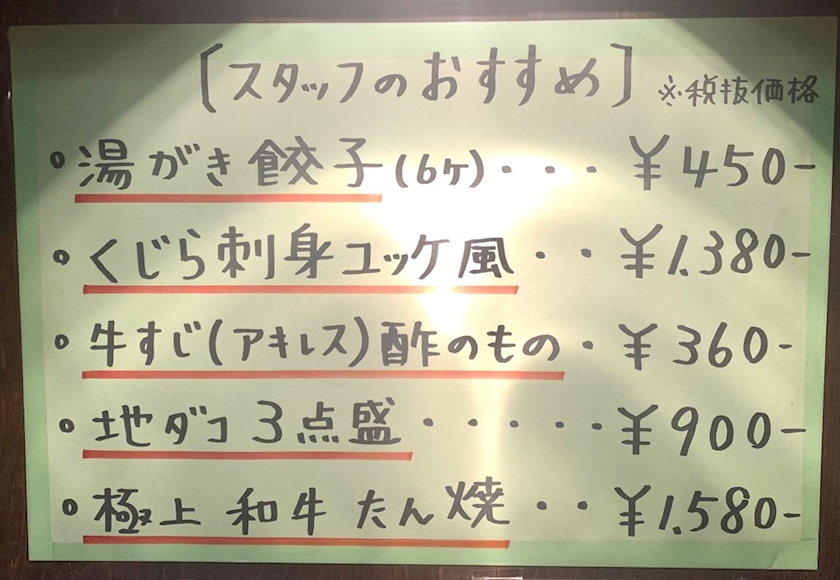 [スタッフのおすすめ] ※税抜価格
・湯がき餃子(6ケ)・・・¥450-
・くじら刺身ユッケ風・・¥1.380-
・牛すじ(アキレス)酢のもの・¥360-
・地ダコ3点盛・・・・・¥900-
・極上和牛たん焼・・¥1.580-